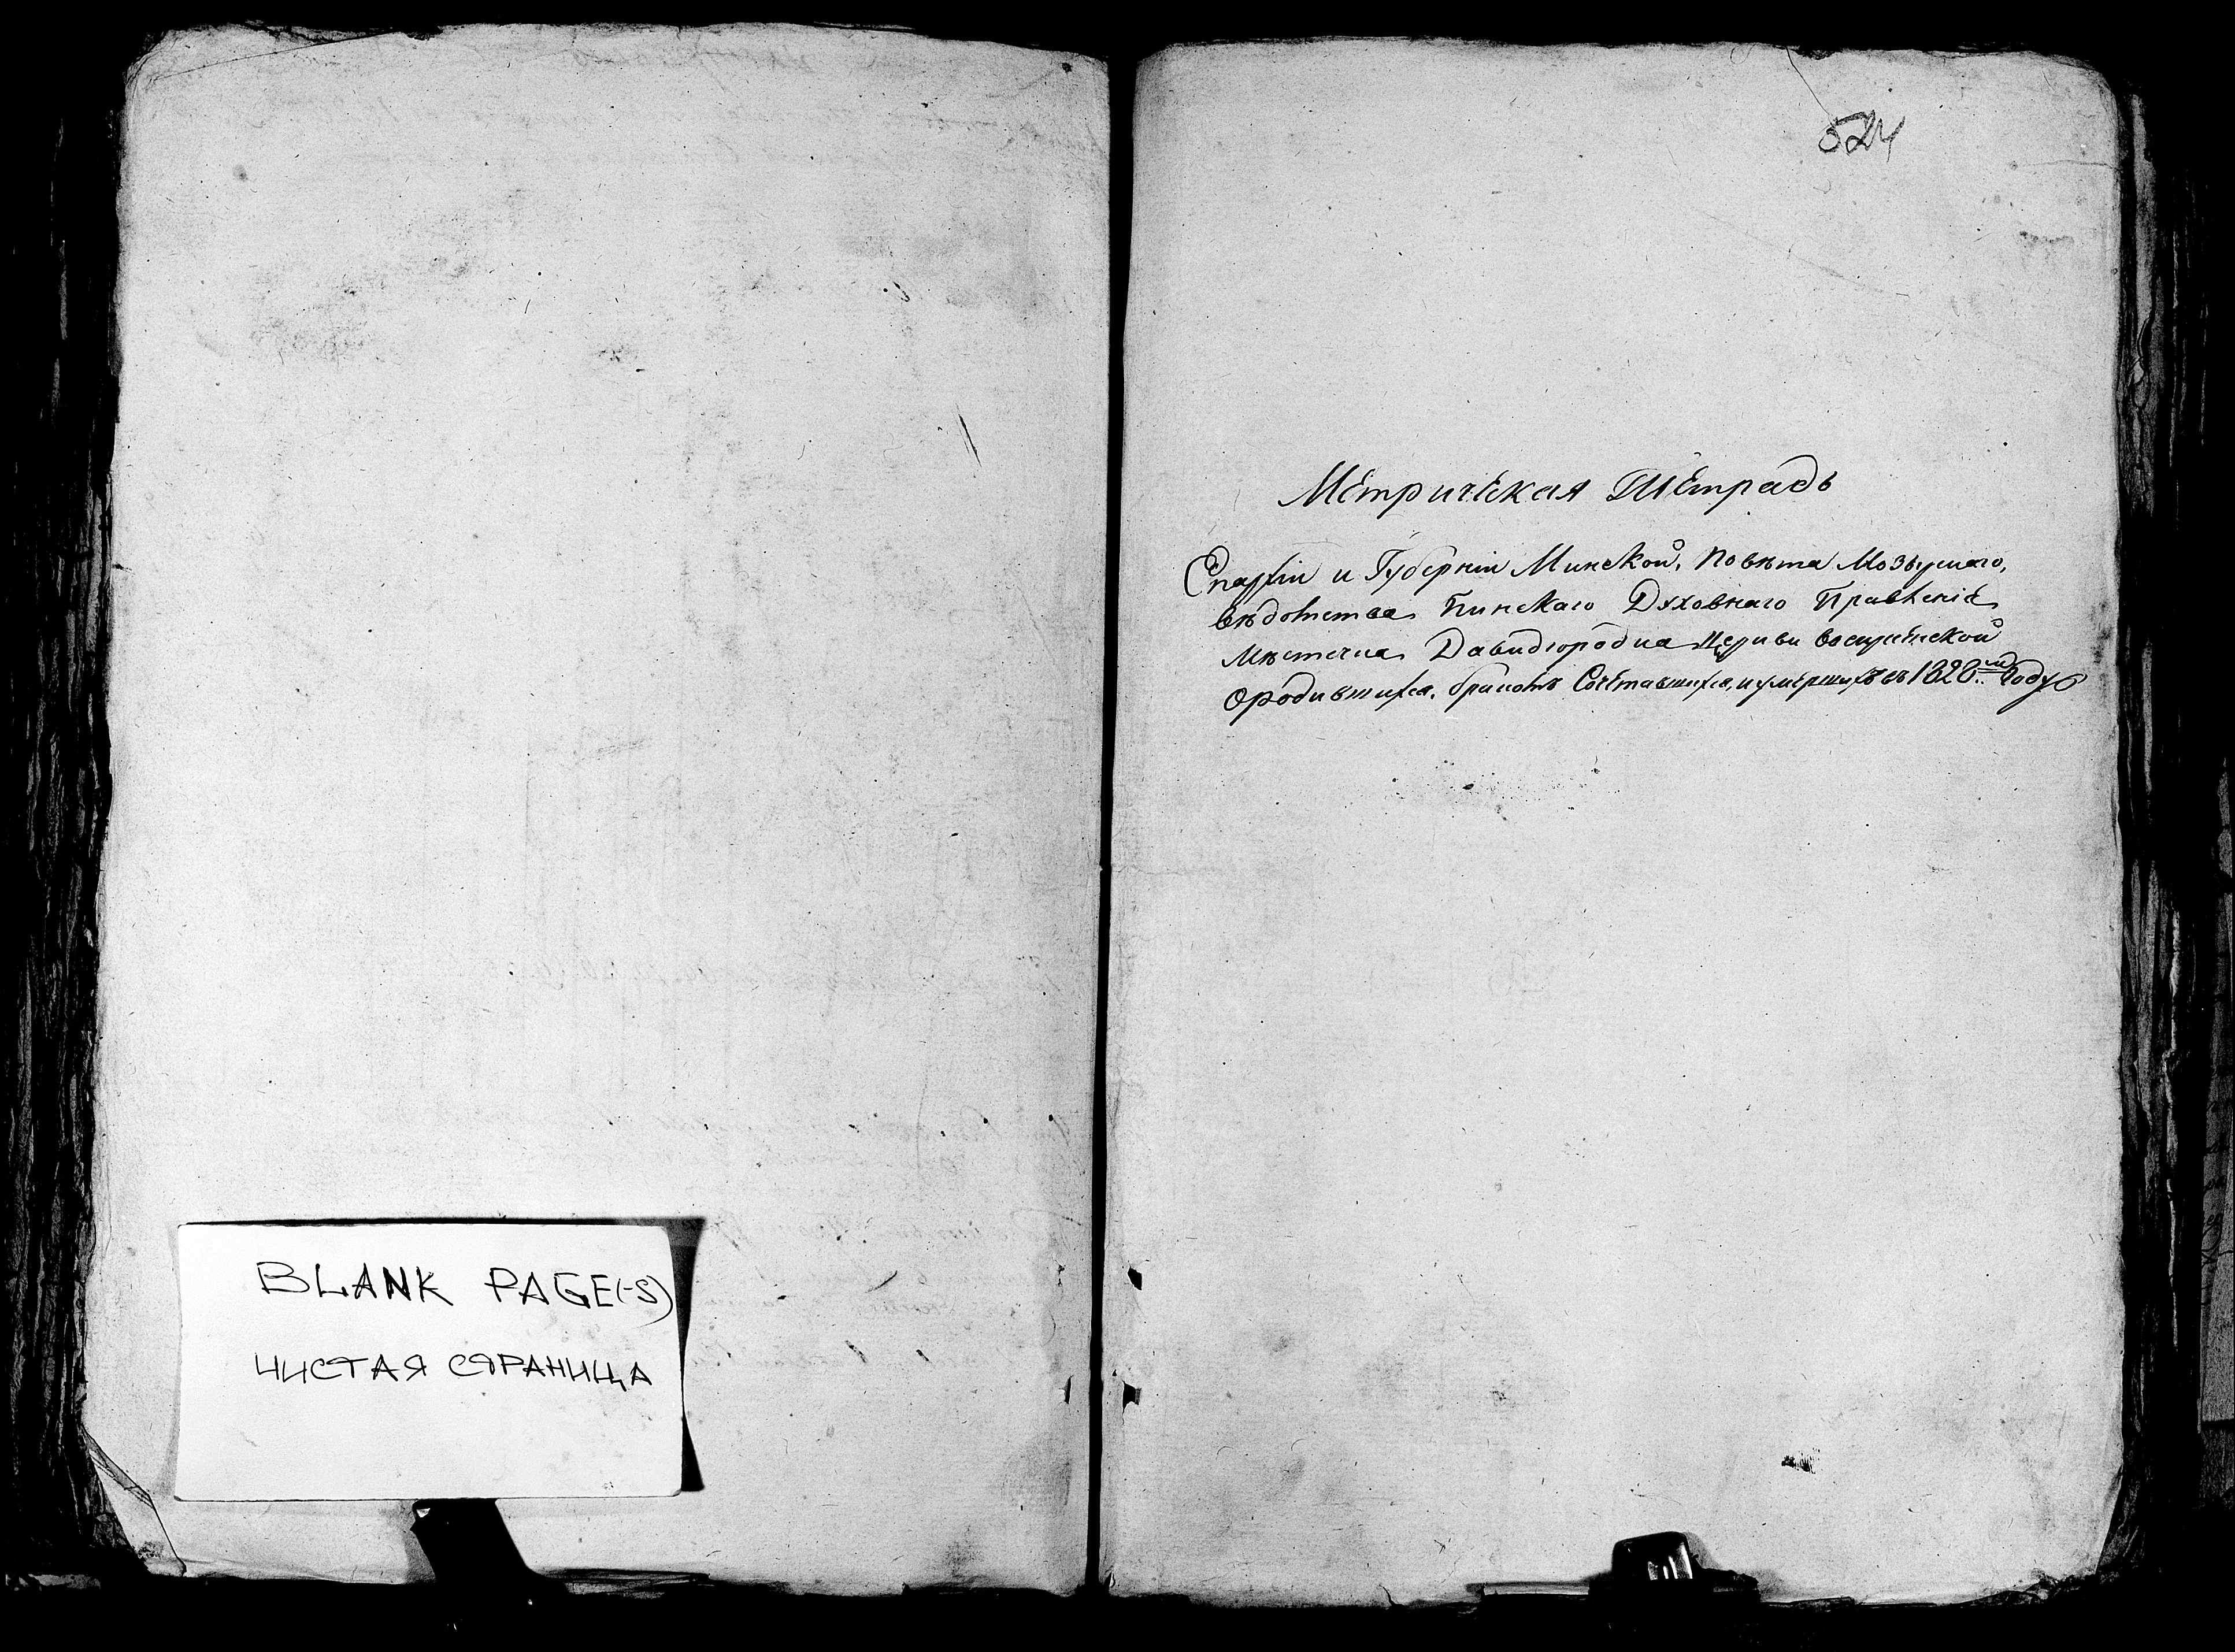 BLANK PAGE(-S)
ЧИСТАЯ СТРАНИЦА
524
Метрическая Тетрадь
Епархiи и Губернiи Минской, Повѣта Мозырскаго,
вѣдомства Пинскаго Духовнаго Правленiя
Мѣстечка Давидгородка Церкви Воскресенской
ородившихся, бракомъ Сочетавшихся, и умершихъ въ 1820м Году